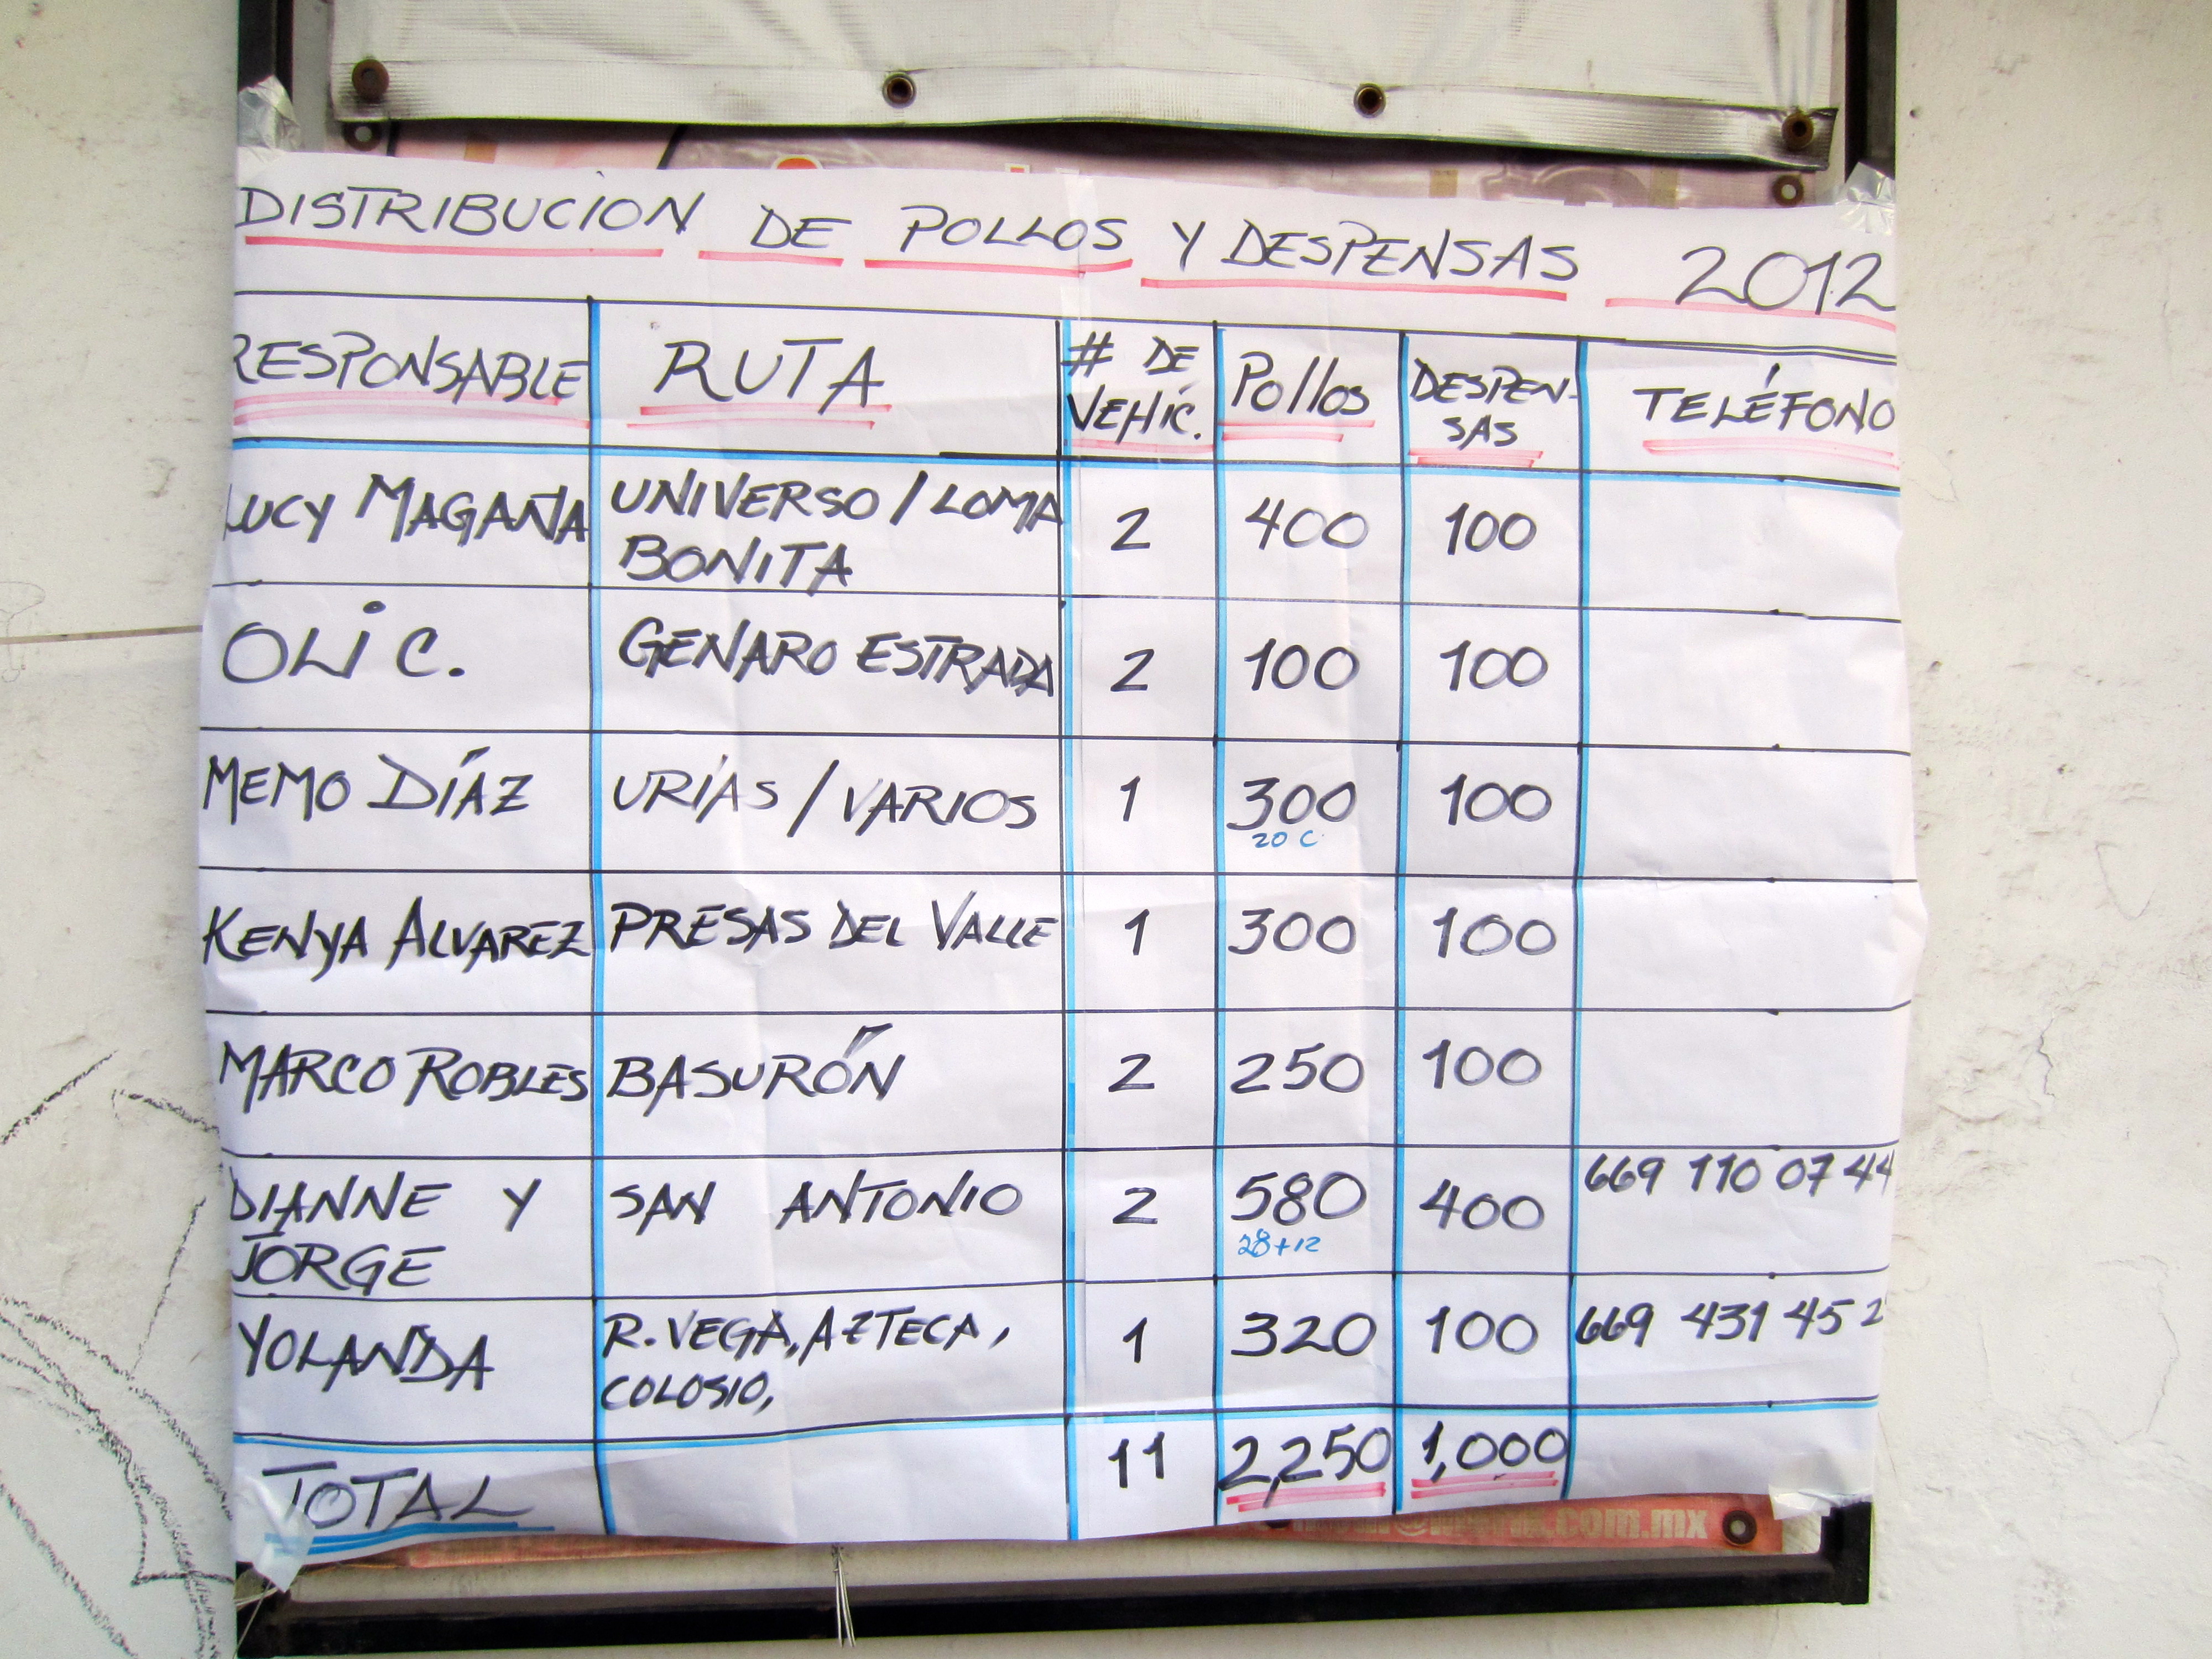 DISTRIBUCION DE POLLOS Y DESPENSAS 2012
RESPONSABLE RUTA # DE VEHÍC. Pollos DESPEN-SAS TELÉFONO
LUCY MAGAÑA UNIVERSO / LOMA BONITA 2 400 100
OLI C. GENARO ESTRADA 2 100 100
MEMO DÍAZ URÍAS / VARIOS 1 300 100
20 C
KENYA ALVAREZ PRESAS DEL VALLE 1 300 100
MARCO ROBLES BASURÓN 2 250 100
DIANNE Y JORGE SAN ANTONIO 2 580 400 669 110 07 44
28+12
YOLANDA R. VEGA, AZTECA, COLOSIO, 1 320 100 669 431 45 2
TOTAL 11 2,250 1,000
.com.mx